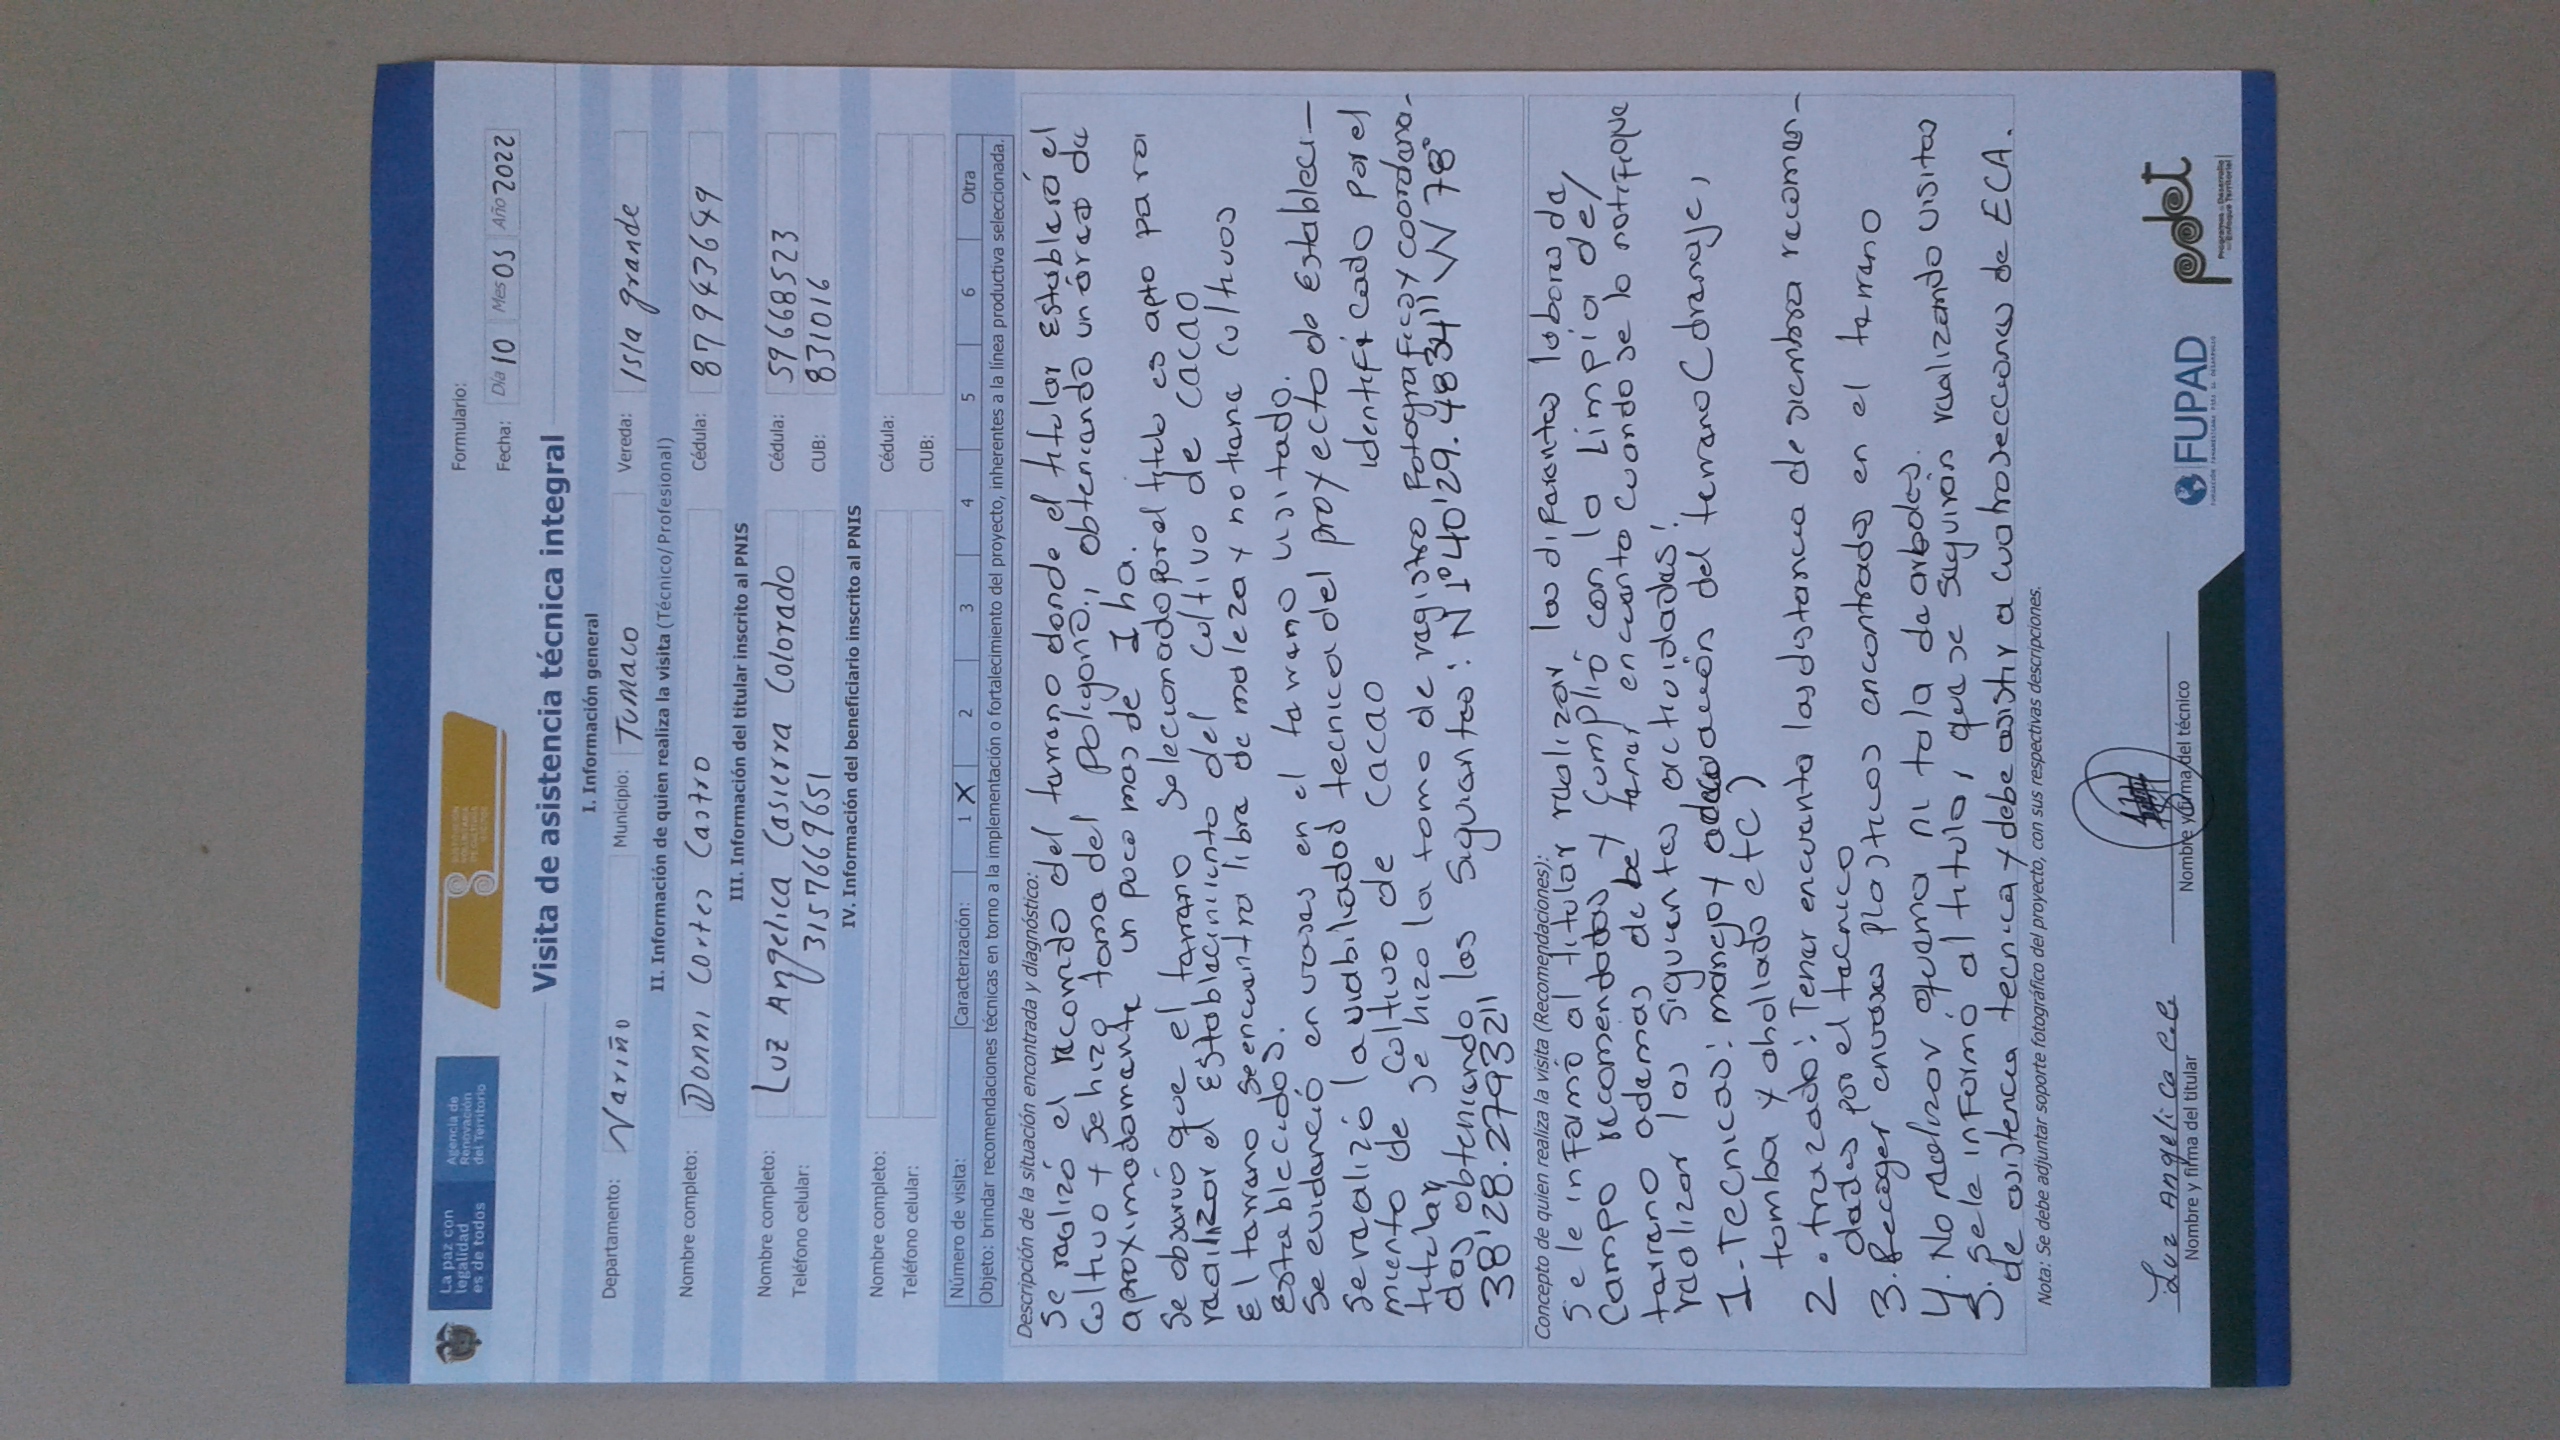 La paz con
legalidad
es de todos
Agencia de
Renovación
del Territorio
SUSTITUCIÓN
VOLUNTARIA
DE CULTIVOS
ILÍCITOS
Formulario:
Fecha: Día 10 Mes 05 Año 2022
Visita de asistencia técnica integral
I. Información general
Departamento: Nariño Municipio: Tumaco Vereda: Isla grande
II. Información de quien realiza la visita (Técnico/Profesional)
Nombre completo: Donni Cortes Castro Cédula: 87943649
III. Información del titular inscrito al PNIS
Nombre completo: Luz Angelica Casierra Colorado Cédula: 59668523
Teléfono celular: 3157669651 CUB: 831016
IV. Información del beneficiario inscrito al PNIS
Nombre completo: Cédula:
Teléfono celular: CUB:
Número de visita: Caracterización: 1 X 2 3 4 5 6 Otra
Objeto: brindar recomendaciones técnicas en torno a la implementación o fortalecimiento del proyecto, inherentes a la línea productiva seleccionada.
Descripción de la situación encontrada y diagnóstico:
Se realizó el recorrido del terreno donde el titular establecerá el
cultivo y se hizo toma del poligono, obteniendo un área de
aproximadamente un poco mas de 1 ha.
Se observó que el terreno seleccionado por el titulo es apto para
realizar el establecimiento del cultivo de cacao
El terreno se encuentra libre de maleza y no tiene cultivos
establecidos.
Se evidenció envases en el terreno visitado.
Se realizó la viabilidad tecnica del proyecto de estableci-
miento de cultivo de cacao identificado por el
titular se hizo la toma de registro fotografico y coordena-
das obteniendo las siguientes: N 1°40'29.48341'' W 78°
38'28.27932''
Concepto de quien realiza la visita (Recomendaciones):
Se le informó al titular realizar las diferentes labores de
campo recomendadas y cumplió con la limpia del
terreno ademas debe tener encuenta cuando se lo notifique
realizar las siguientes actividades:
1-Tecnicas: manejo y adecuación del terreno (dranaje,
tomba y ahollado etc)
2. trazado: Tener encuenta las distancia de siembra recomen-
dadas por el tecnico
3. Recoger envases plasticos encontrados en el terreno
4. No realizar quema ni tala de arboles.
5. Se le informó al titulo, que se seguirán realizando visitas
de asistencia tecnica y debe asistir a cuatro secciones de ECA.
Nota: Se debe adjuntar soporte fotográfico del proyecto, con sus respectivas descripciones.
Luz Angelica C.C.
Nombre y firma del titular
Nombre y firma del técnico
FUPAD
FUNDACIÓN PANAMERICANA PARA EL DESARROLLO
pdet
Programas de Desarrollo
con Enfoque Territorial